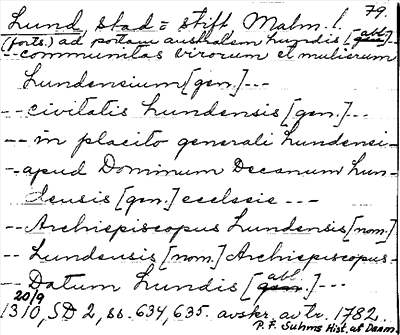 79.
Lund, stad = stift Malm. l.
(forts.) ad portam australem Lundis [abl.]--
-- communitas virorum et mulierum
Lundensium [gen.] ---
-- civitatis Lundensis [gen.] ---
-- in placito generali Lundensi --
-- apud Dominum Decanum Lun-
densis [gen.] ecclesie ---
-- Archiepiscopus Lundensis [nom.]
-- Lundensis [nom.] Archiepiscopus --
-- Datum Lundis [abl.] ---
20/9
1310, SD 2, ss. 634, 635. avskr. av tr. 1782.
P. F. Suhms Hist. af Danm.